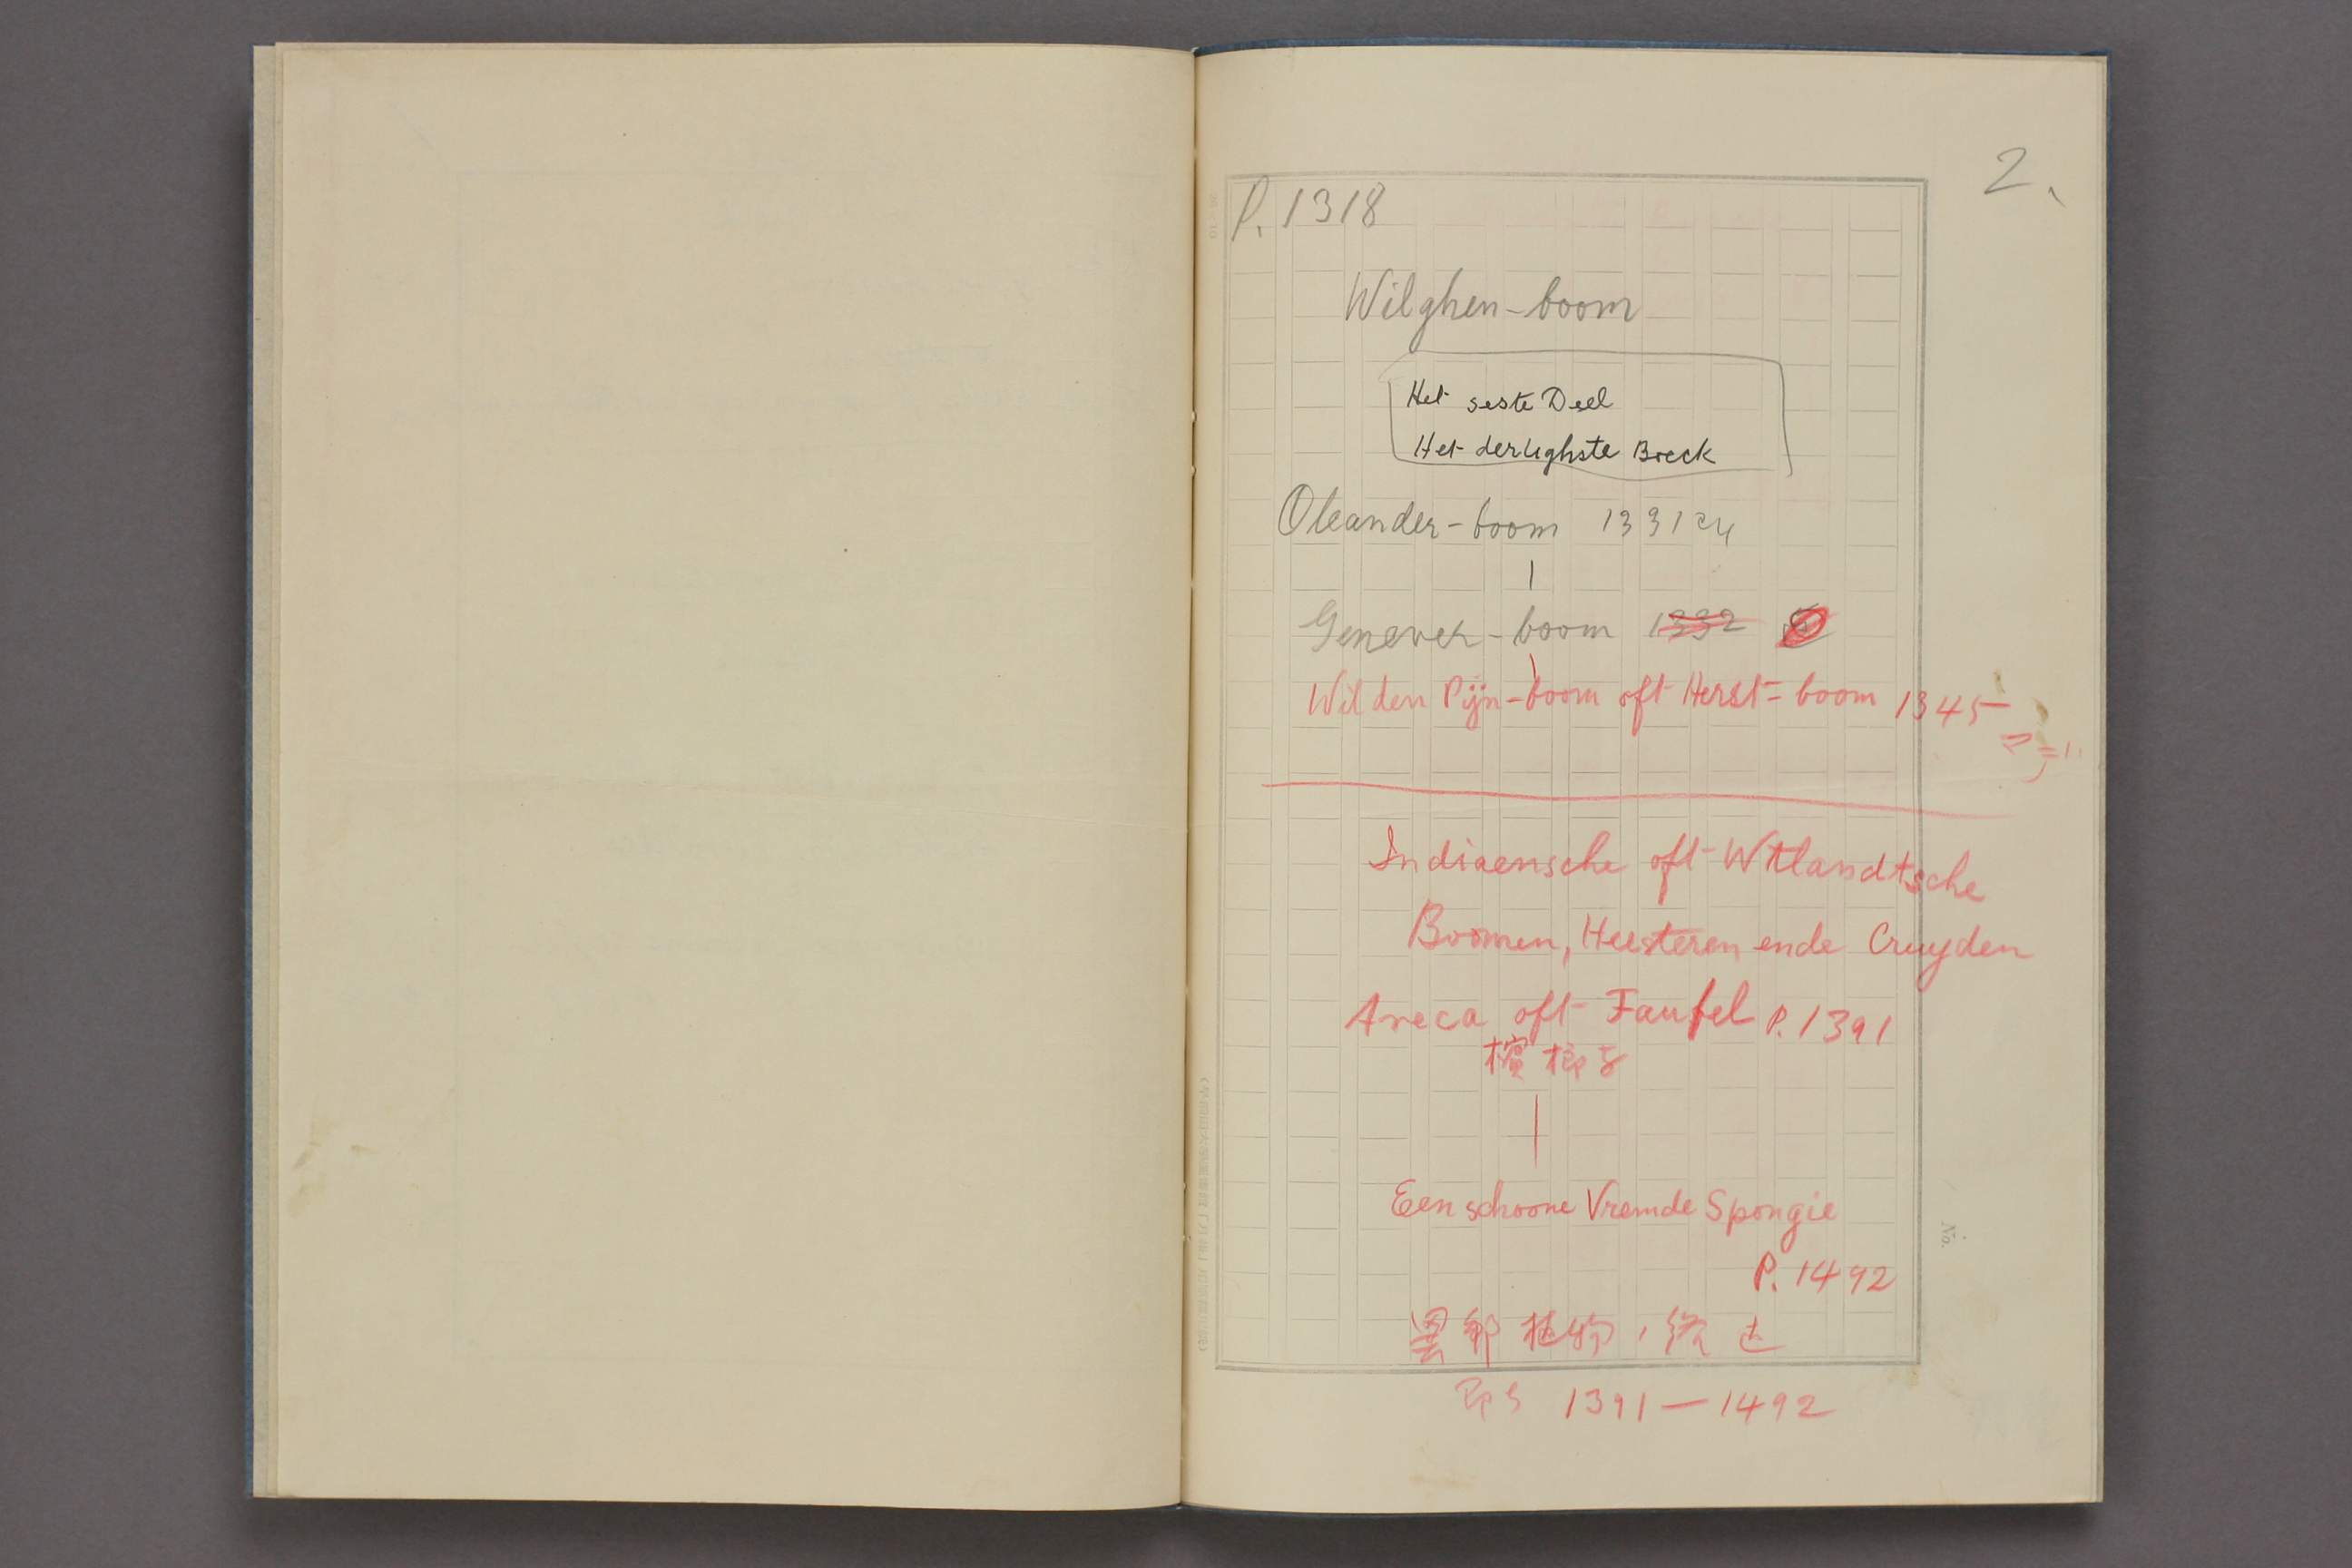 2.
P. 1318
Wilghen-boom
Het seste Deel
Het dertighste Boeck
Oleander-boom 1331 ヨリ
Genever-boom 1332
Wilden Pijn-boom oft Herst-boom 1345
マデ
Indiaensche oft Wtlandtsche
Boomen, Heesteren ende Cruyden
Areca oft Faufel P. 1391
檳榔子
Een schoone Vremde Spongie
P. 1492
植物
即チ 1391—1492
No.